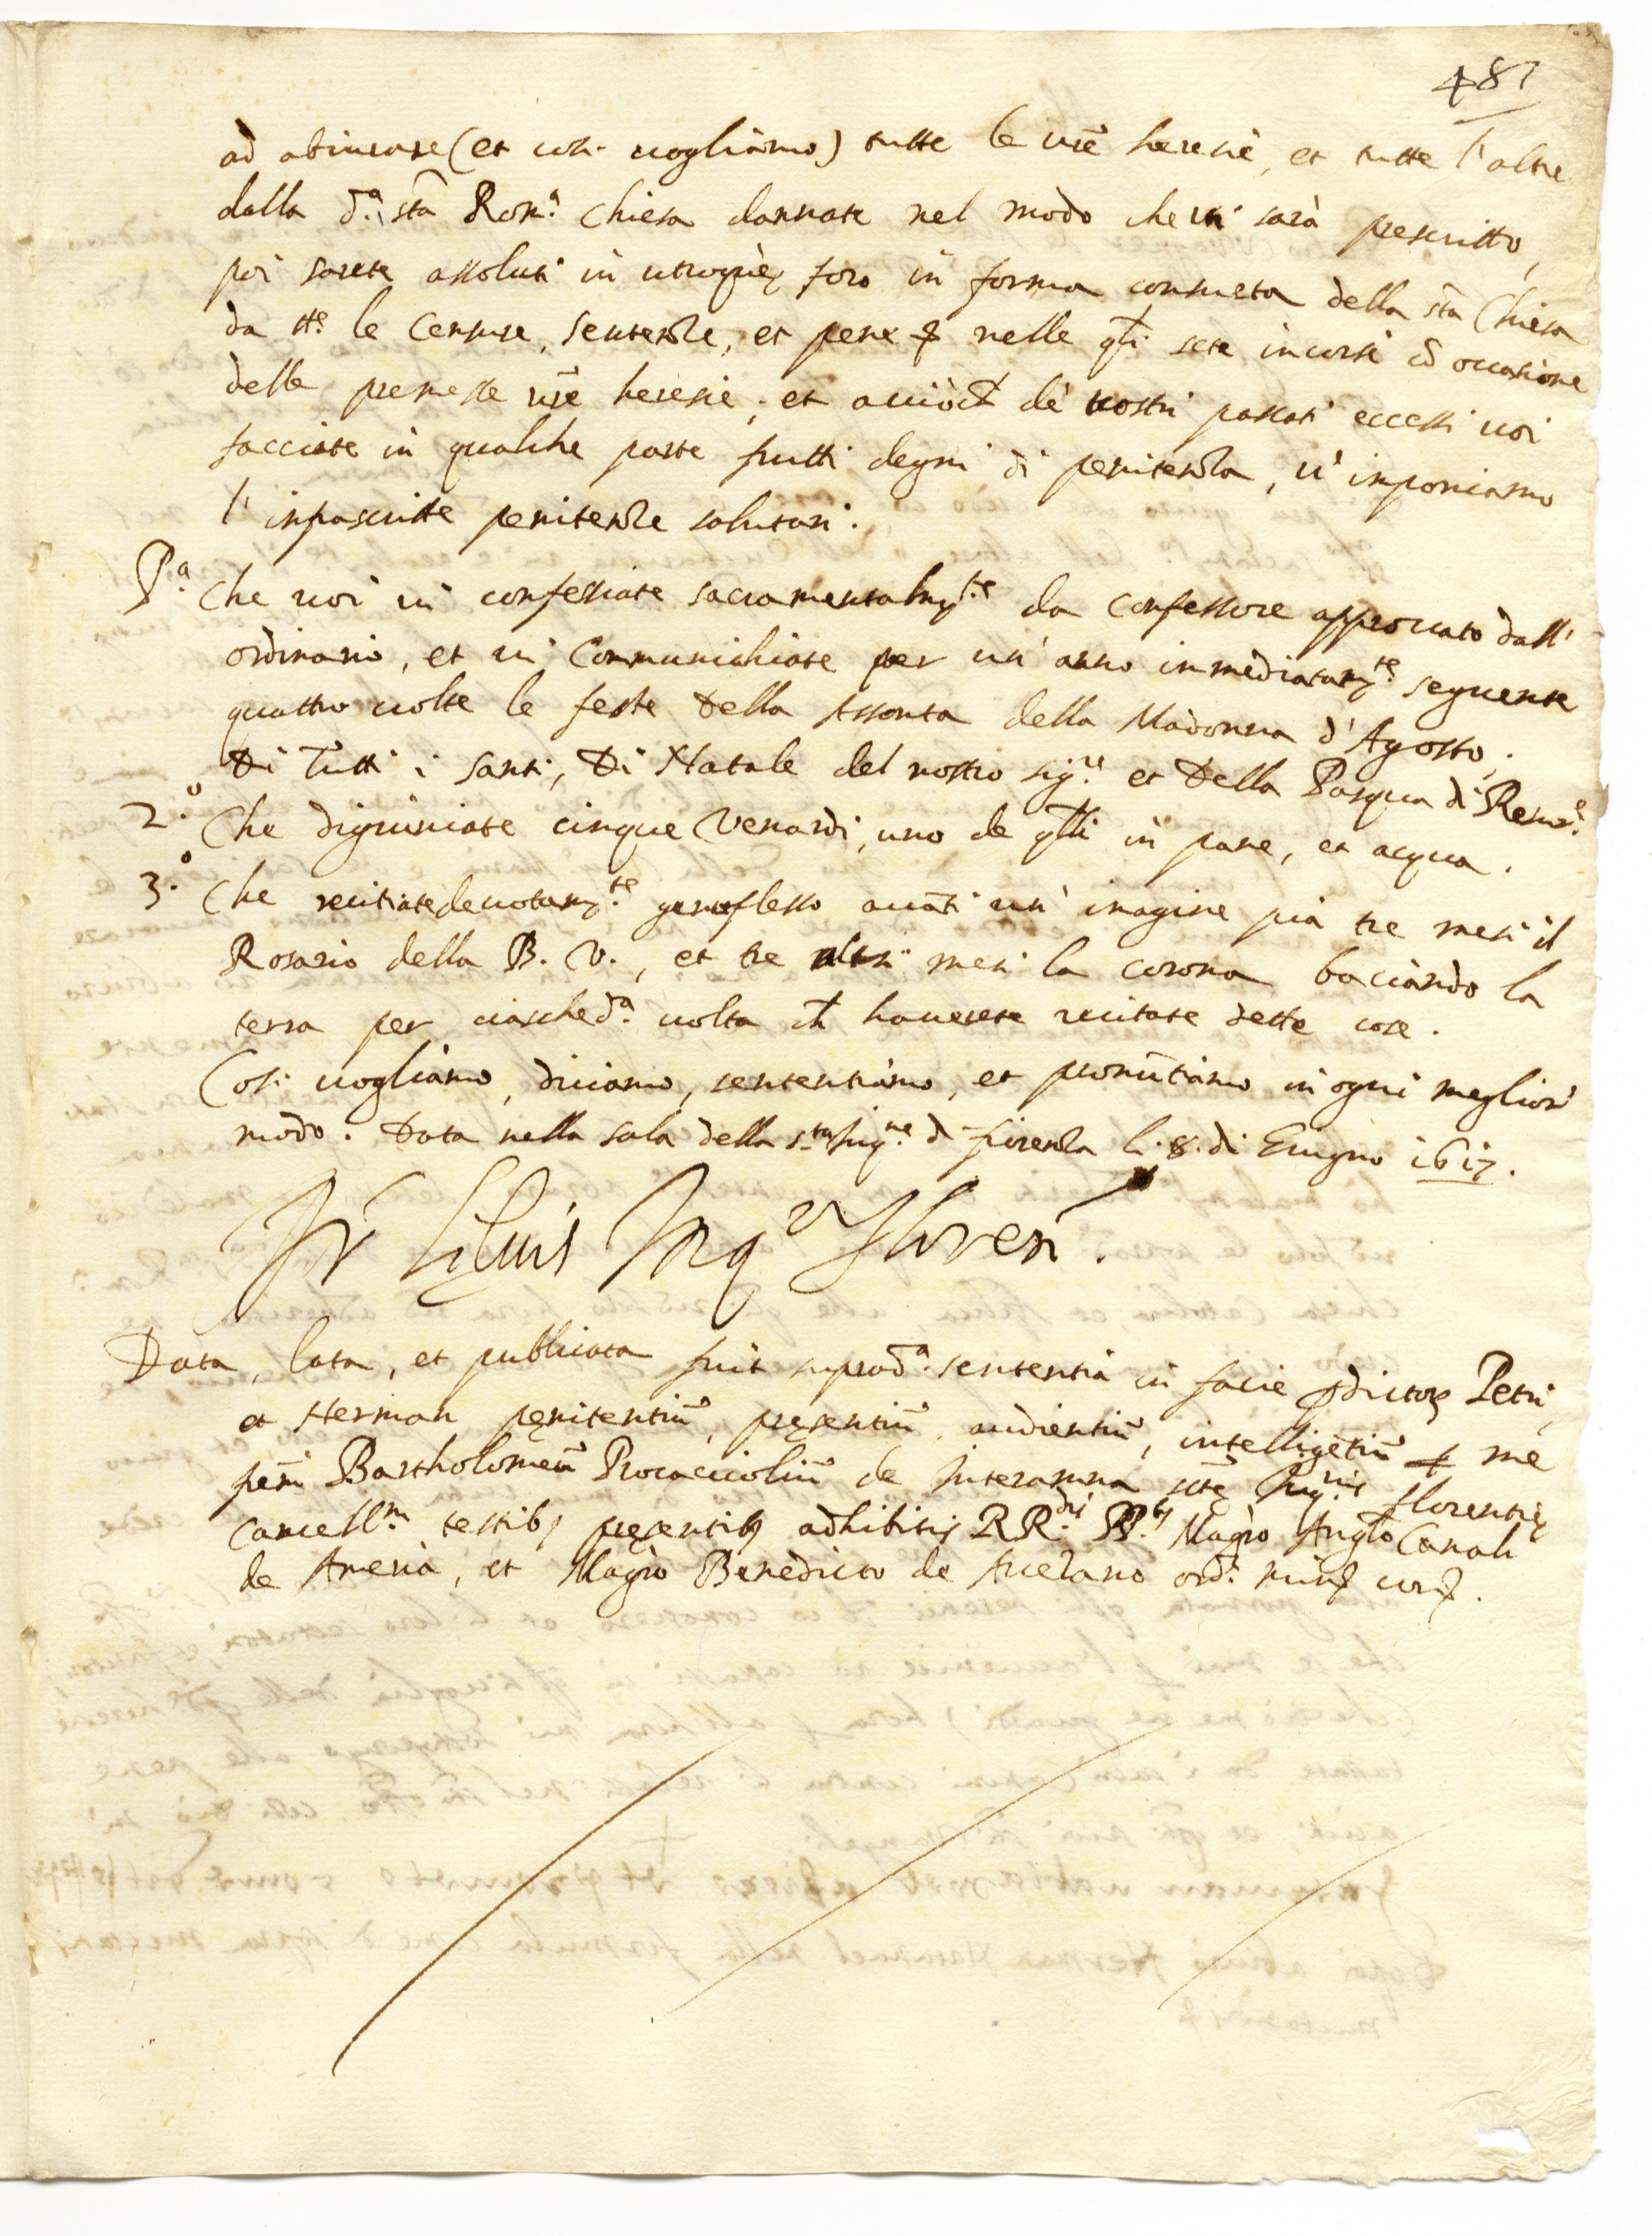 487
ad abiurare (et così uogliamo) tutte le vr̃e heresie, et tutte l'altre
dalla d.ª sta Rom.ª Chiesa dannate nel modo che ui sarà prescritto,
poi sarete assoluti in utroque foro in forma consueta della sta Chiesa
da tte le Censure, sentenze, et pene nelle qli sete incorsi cõ occasione
delle premesse vr̃e heresie; et acciò ch̃ de uostri passati eccessi uoi
facciate in qualche parte frutti degni di penitenza, u'imponiamo
l'infrascritte penitenze salutari.
P.ª Che uoi ui confessiate sacramentalm.te da Confessore approuato dall'
ordinario, et ui Communichiate per un'anno immediatam.te seguente
quattro uolte le feste Della Assonta della Madonna d'Agosto,
Di Tutti i santi, Di Natale del nostro sig.re et Della Pasqua di Resur.e
2.º Che digiuniate cinque Venardi, uno de qlli in pane, et acqua.
3.º Che recitiate deuotam.te genuflesso auãti un'imagine pia tre mesi il
Rosario della B. V., et tre altri mesi la corona baciando la
terra per ciasched.ª uolta ch̃ hauerete recitate dette cose.
Così uogliamo, diciamo, sententiamo, et pronũtiamo in ogni meglior
modo. Data nella sala della s.ta Inq.ne di fiorenza li 8. di Giugno 1617.
Fr Inq.r Floren.
Data, lata, et publicata fuit suprad.ª sententia in facie pdictor Petri,
et Herman penitentiũ, presentiũ, audientiũ, intelligẽtiũ me
Bartholomeũ Procacciolũ de Interamna stę Inq.nis florentię
Cancell.m testibus presentibus adhibitis RR.dis PP.bus Magro Anglo Canali
de Ameria, et Magro Benedicto de ord. min. con.